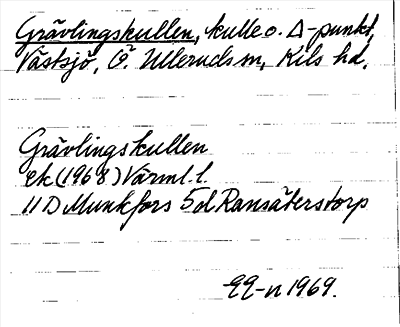 Grävlingskullen, kulle o. Δ-punkt,
Västsjö, Ö. Ulleruds sn, Kils hd.
Grävlingskullen
ek (1968) Värml. l.
11 D Munkfors 5d Ransäterstorp
EE-n 1969.